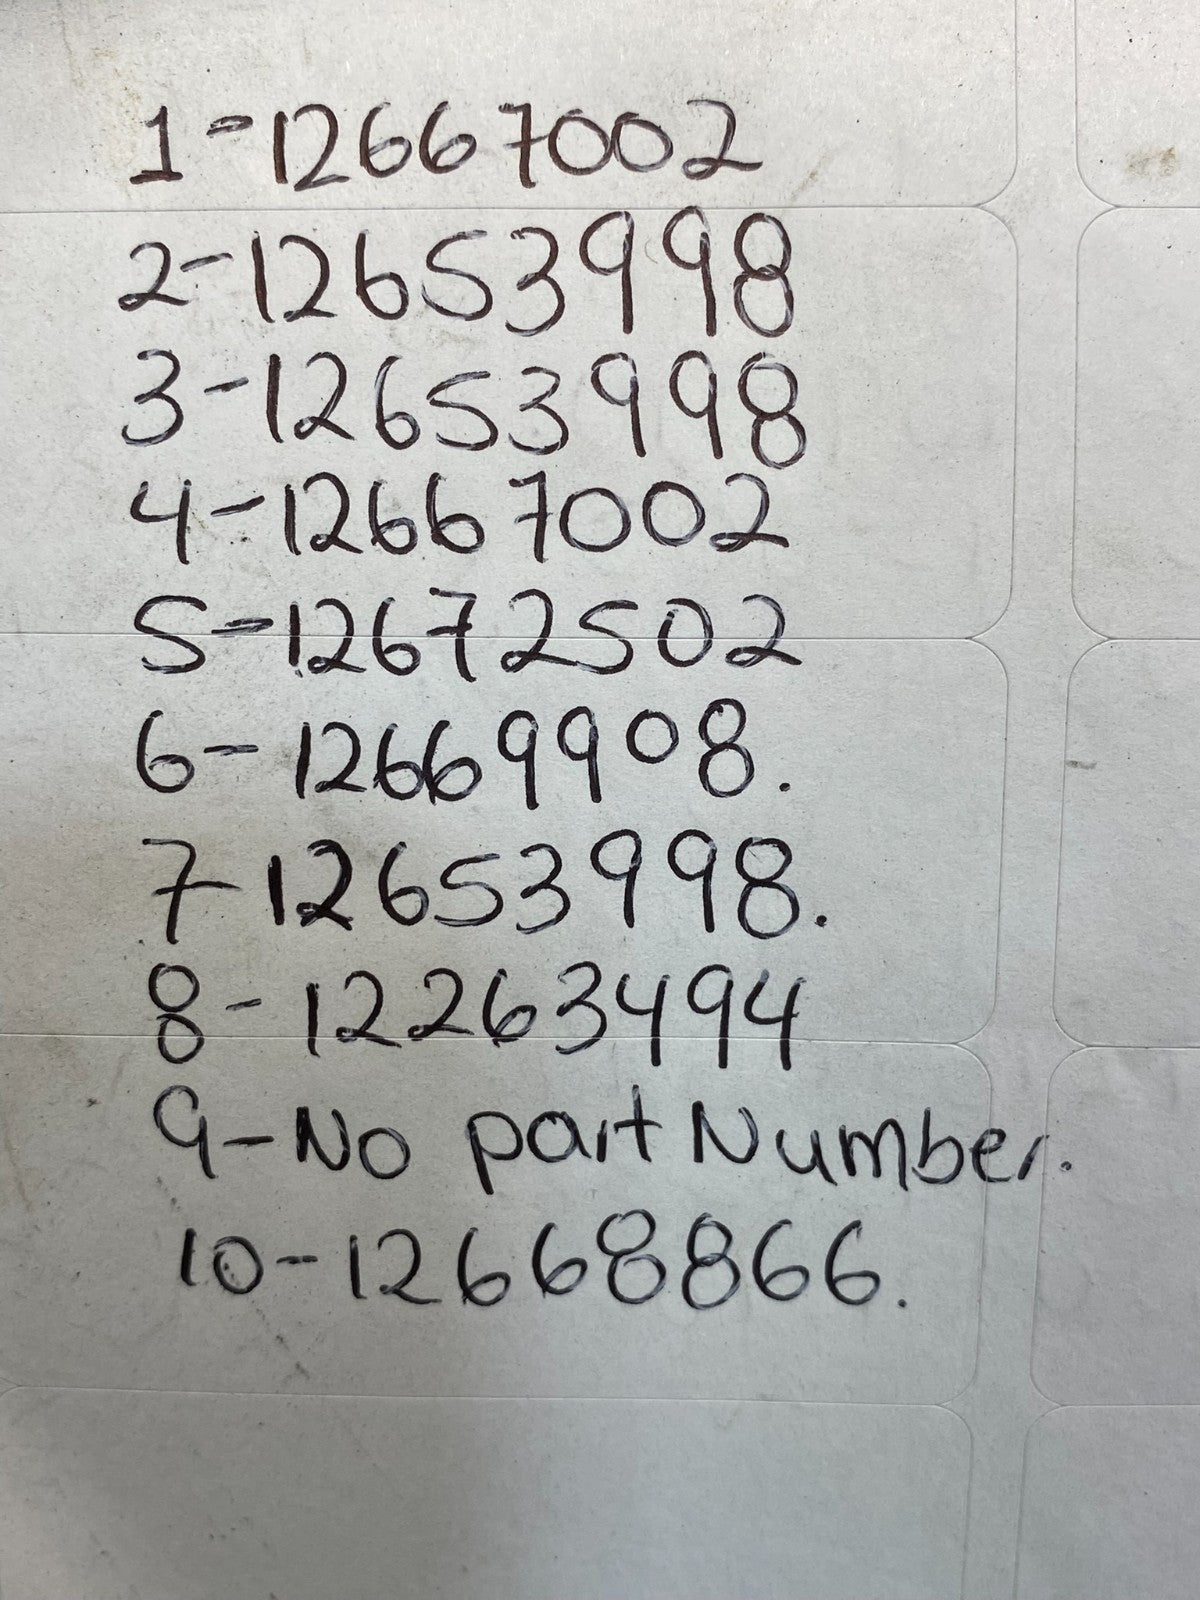 1-12667002
2-12653998
3-12653998
4-12667002
5-12672502
6-12669908.
7-12653998.
8-12263494
9-No part Number.
10-12668866.